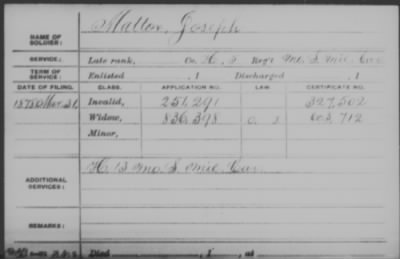 NAME OF SOLDIER: Matton, Joseph
SERVICE: Late rank, Co. H, 5 Reg't Mo. S. Mil. Cav.
TERM OF SERVICE: Enlisted , 1 Discharged , 1
DATE OF FILING. CLASS. APPLICATION NO. LAW. CERTIFICATE NO.
1878 Mar. 21, Invalid, 251,291 327,502
Widow, 836,398 603,712
Minor,
ADDITIONAL SERVICES: H. 13 Mo. S. Mil. Cav.
REMARKS:
Died , 1 , at